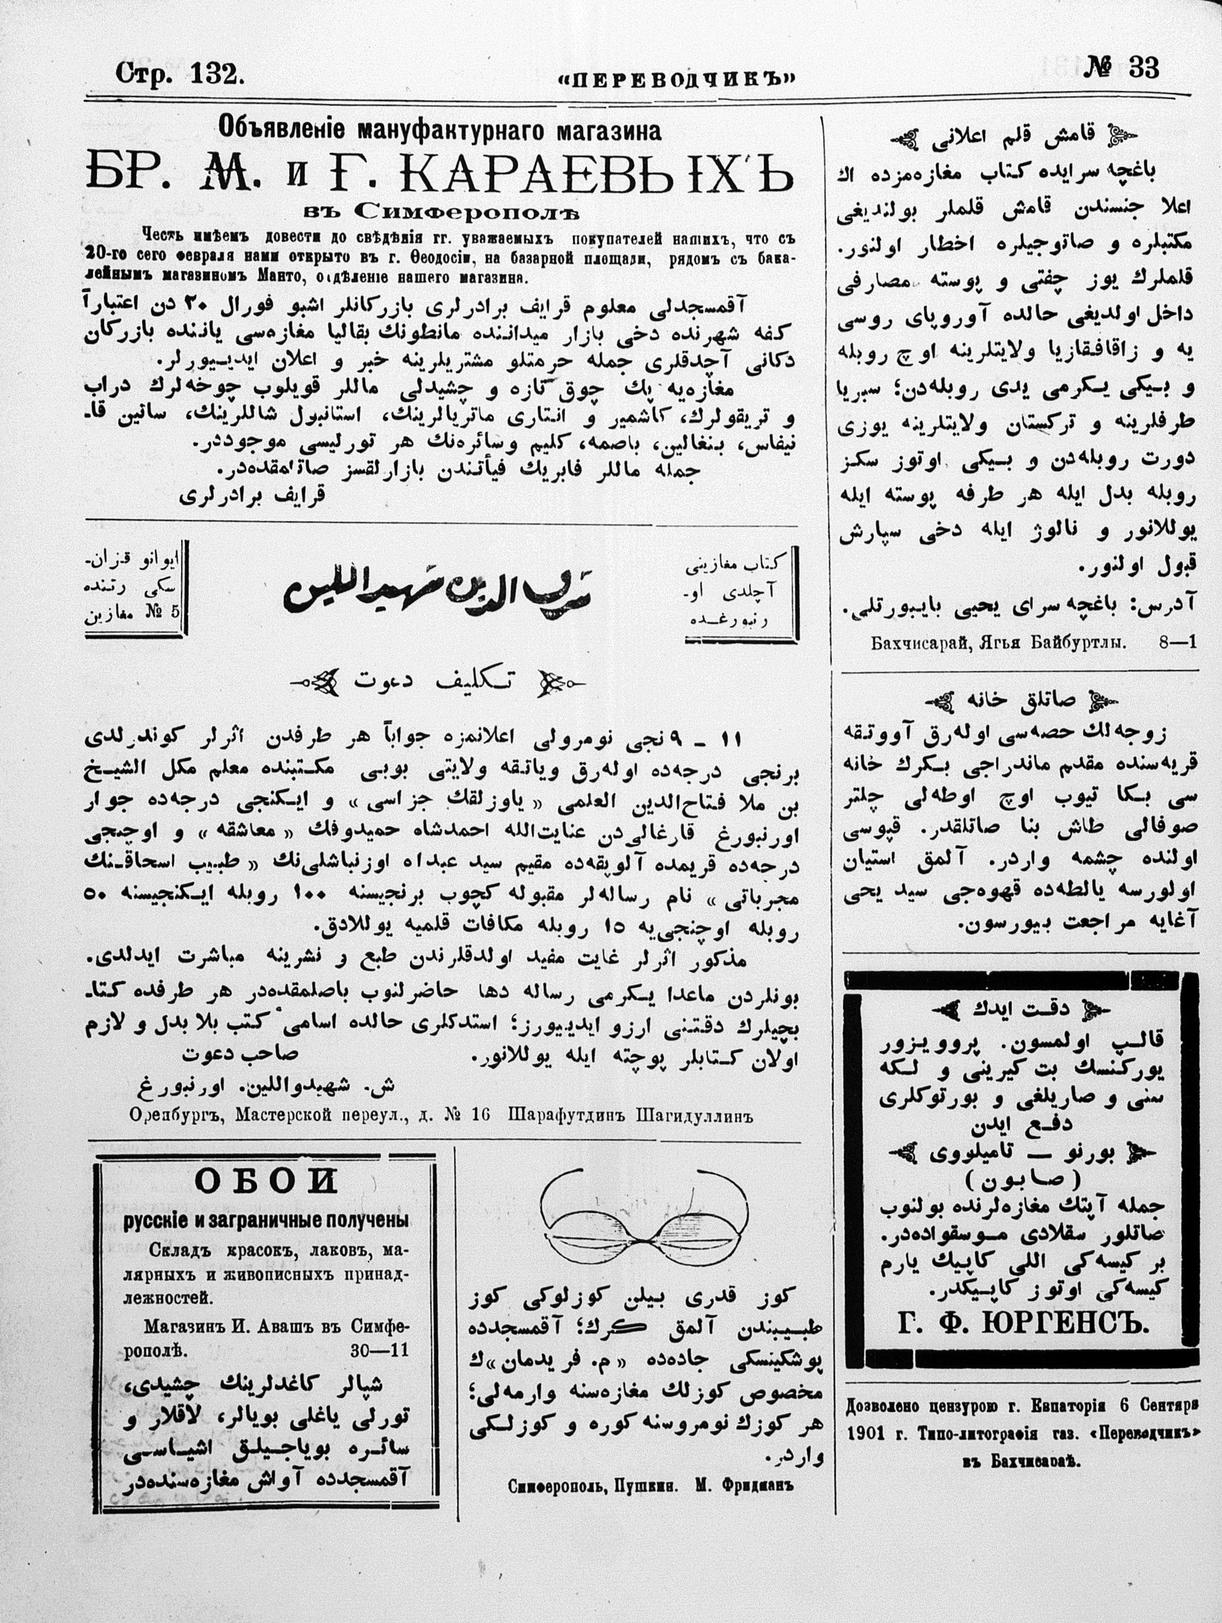 Стр. 132.
«ПЕРЕВОДЧИКЪ»
№ 33
Объявленіе мануфактурнаго магазина
БР. М. и Г. КАРАЕВЫХЪ
въ Симферополѣ
Честь имѣемъ довести до свѣдѣнія гг. уважаемыхъ покупателей нашихъ, что съ
20-го сего февраля нами открыто въ г. Ѳеодосіи, на базарной площади, рядомъ съ бака-
лейнымъ магазиномъ Манто, отдѣленіе нашего магазина.
آقمسجدلی معلوم قرایف برادرلری بازرکانلر اشبو فورال ٢٠ دن اعتباراً
کفه شهرنده دخی بازار میداننده مانطونك بقالیا مغازه‌سی یاننده بازرکان
دکانی آچدقلری جمله حرمتلو مشتریلرینه خبر و اعلان ایدییورلر.
مغازه‌یه پك چوق تازه و چشیدلی ماللر قویلوب چوخه‌لرك دراب
و تریقولرك، کاشمیر و انتاری ماتریالرینك، استانبول شاللرینك، ساتین قا-
نیفاس، بنغالین، باصمه، کلیم وسائره‌نك هر تورلیسی موجوددر.
جمله ماللر فابریك فیأتندن بازارلقسز صاتلمقده‌در.
قرایف برادرلری
کتاب مغازینی
آچلدی او-
رنبورغده
شرف الدین شهیداللین
ایوانو قزان-
سکی رتنده
№ 5 مغازین
تکلیف دعوت
١١ - ٩ نجی نومرولی اعلانمزه جواباً هر طرفدن اثرلر کوندرلدی
برنجی درجه‌ده اوله‌رق ویاتقه ولایتی بوبی مکتبنده معلم مکل الشیخ
بن ملا فتاح‌الدین العلمی « یاوزلقك جزاسی » و ایکنجی درجه‌ده جوار
اورنبورغ قارغالی‌دن عنایت‌الله احمدشاه حمیدوفك « معاشقه » و اوچنجی
درجه‌ده قریمده آلوپقه‌ده مقیم سید عبدالله اوزنباشلی‌نك « طبیب اسحاق‌نك
مجرباتی » نام رساله‌لر مقبوله کچوب برنجیسنه ١٠٠ روبله ایکنجیسنه ٥٠
روبله اوچنجی‌یه ١٥ روبله مکافات قلمیه یوللادق.
مذکور اثرلر غایت مفید اولدقلرندن طبع و نشرینه مباشرت ایدلدی.
بونلردن ماعدا یکرمی رساله دها حاضرلنوب باصلمقده‌در هر طرفده کتا-
بچیلرك دقتنی ارزو ایدییورز؛ استدکلری حالده اسامئ کتب بلا بدل و لازم
اولان کتابلر پوچته ایله یوللانور.
صاحب دعوت
ش. شهیدواللین. اورنبورغ
Оренбургъ, Мастерской переул., д. № 16 Шарафутдинъ Шагидуллинъ
ОБОИ
русскіе и заграничные получены
Складъ красокъ, лаковъ, ма-
лярныхъ и живописныхъ принад-
лежностей.
Магазинъ И. Авашъ въ Симфе-
рополѣ. 30—11
شپالر کاغدلرینك چشیدی،
تورلی یاغلی بویالر، لاقلار و
سائره بویاجیلق اشیاسی
آقمسجدده آواش مغازه‌سنده‌در
کوز قدری بیلن کوزلوکی کوز
طبیبندن آلمق کرك؛ آقمسجدده
پوشکینسکی جاده‌ده « م. فریدمان »ك
مخصوص کوزلك مغازه‌سنه وارمه‌لی؛
هر کوزك نومروسنه کوره و کوزلکی
واردر.
Симферополь, Пушкин. М. Фридманъ
قامش قلم اعلانی
باغچه سرایده کتاب مغازه‌مزده اك
اعلا جنسندن قامش قلملر بولندیغی
مکتبلره و صاتوجیلره اخطار اولنور.
قلملرك یوز چفتی و پوسته مصارفی
داخل اولدیغی حالده آوروپای روسی
یه و زاقافقازیا ولایتلرینه اوچ روبله
و بیکی یکرمی یدی روبله‌دن؛ سبریا
طرفلرینه و ترکستان ولایتلرینه یوزی
دورت روبله‌دن و بیکی اوتوز سکز
روبله بدل ایله هر طرفه پوسته ایله
یوللانور و نالوژ ایله دخی سپارش
قبول اولنور.
آدرس: باغچه‌سرای یحیی بایبورتلی.
Бахчисарай, Ягья Байбуртлы. 8—1
صاتلق خانه
زوجه‌لك حصه‌سی اوله‌رق آووتقه
قریه‌سنده مقدم ماندراجی بکرك خانه
سی بکا تیوب اوچ اوطه‌لی چلتر
صوفالی طاش بنا صاتلقدر. قپوسی
اولنده چشمه واردر. آلمق استیان
اولورسه یالطه‌ده قهوه‌جی سید یحی
آغایه مراجعت بیورسون.
دقت ایدك
قالپ اولمسون. پروویزور
یورکنسك بت کیرینی و لکه
سنی و صاریلغی و بورتوکلری
دفع ایدن
بورنو — تامیلووی
(صابون)
جمله آپتك مغازه‌لرنده بولنوب
صاتلور سقلادی موسقواده‌در.
بر کیسه‌کی اللی کاپیك یارم
کیسه‌کی اوتوز کاپیکدر.
Г. Ф. ЮРГЕНСЪ.
Дозволено цензурою г. Евпаторія 6 Сентяря
1901 г. Типо-литографія газ. «Переводчикъ»
въ Бахчисараѣ.